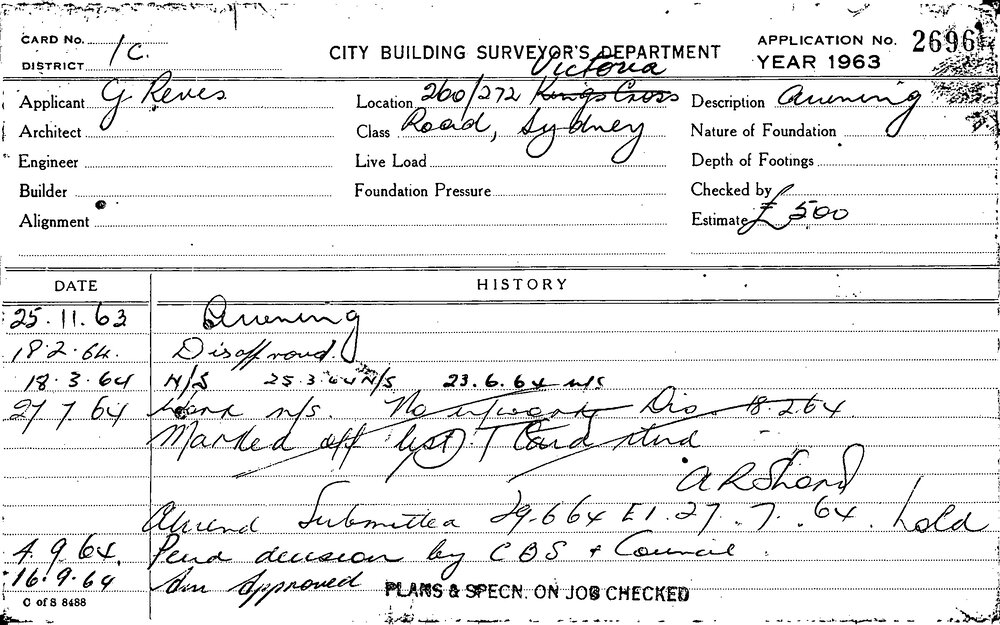 CARD No.
DISTRICT 1C.
CITY BUILDING SURVEYOR'S DEPARTMENT
APPLICATION No. 2696
YEAR 1963
Applicant G Reves
Location 260/272 Kings Cross Victoria
Description Awening
Architect
Class Road, Sydney
Nature of Foundation
Engineer
Live Load
Depth of Footings
Builder
Foundation Pressure
Checked by
Alignment
Estimate £ 500
DATE HISTORY
25.11.63 Awening
18.2.64. Disapproved.
18.3.64 N/S 25.3.64 N/S 23.6.64 n/s
27 7 64 Work n/s. No Dis. 18.2.64
Marked off list Card
A R Shand
Amend Submitted 29.6 64 E1.27.7.64. hold
4.9.64. Pend decision by CBS + Council.
16.9.64 Am Approved PLANS & SPECN. ON JOB CHECKED
C of S 8488